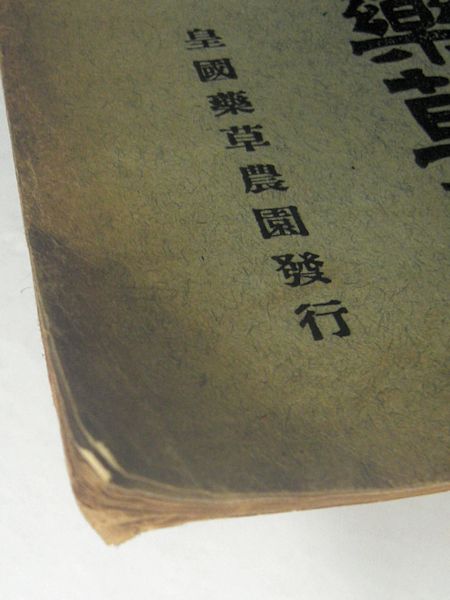 藥草
皇國藥草農園發行